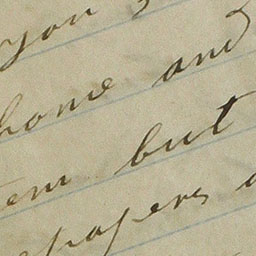 you
home and
em but
papers